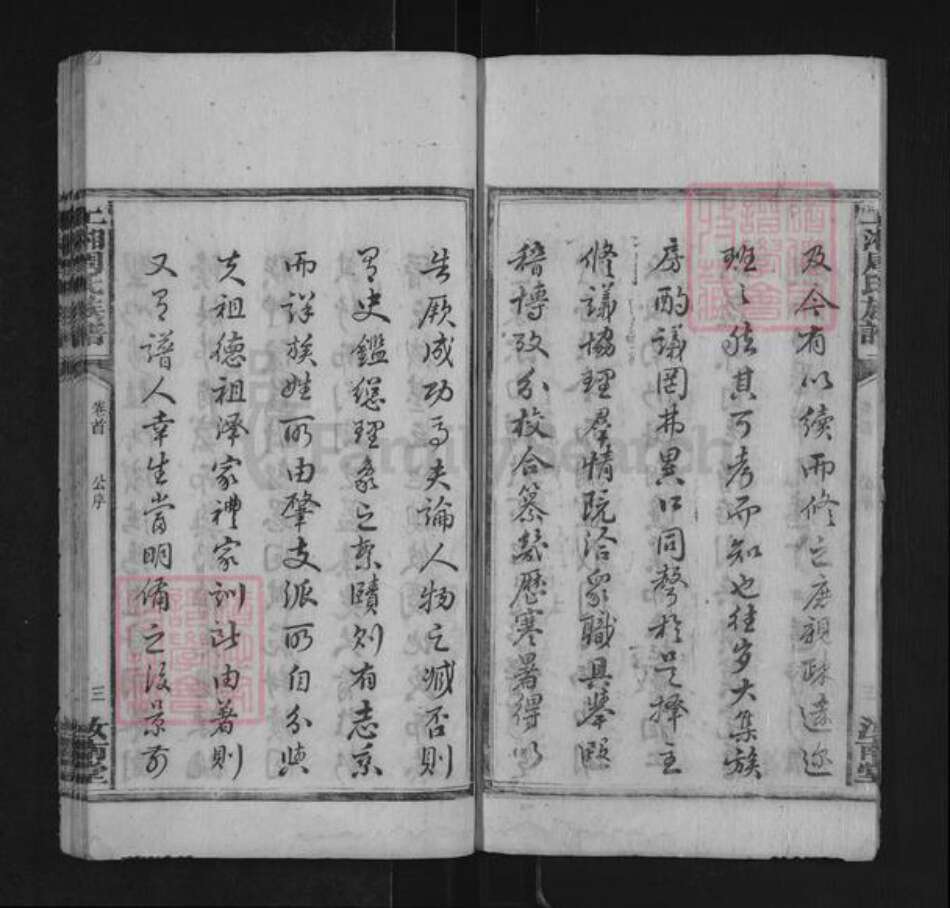 及今有以續而修之庶親疎遠邇
班班然其可考而知也往歲大集族
房酌議罔弗異口同聲於是擇主
修議協理羣情既洽衆職具舉照
稽博攷分校合纂愁歷寒暑得以
告厥成功焉夫論人物之臧否則
有史鑑總理象之繁賾則有志系
而詳族姓所由肇支派所自分與
夫祖德祖澤家禮家訓此由著則
又有譜人幸生當明備之後景前
上湘周氏族譜
卷首
公序
三
汝南堂
上湘周氏族譜
汝南堂
FamilySearch